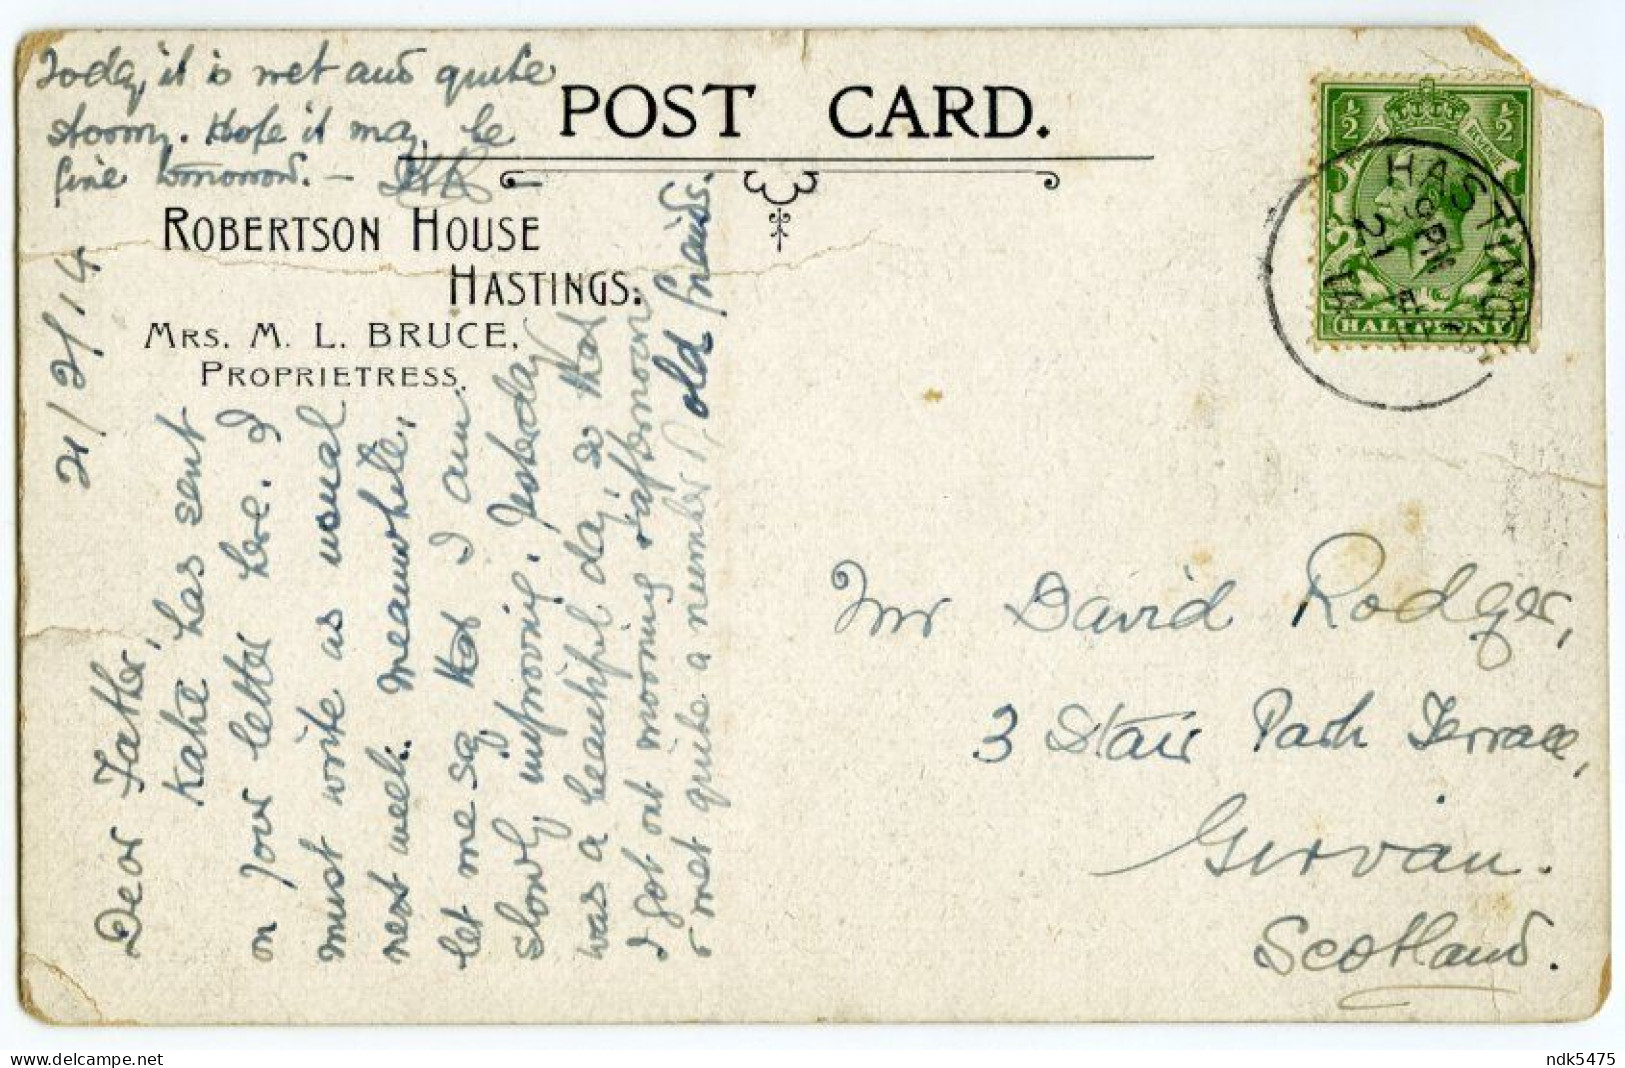 POST CARD.
ROBERTSON HOUSE
HASTINGS.
MRS. M. L. BRUCE,
PROPRIETRESS.
21/2/14
Dear Father,
Katie has sent
on your letter here. I
must write as usual
next week. Meanwhile,
let me say that I am
slowly improving. Yesterday
was a beautiful day, so that
I got out morning & afternoon
& met quite a number of old friends.
Today it is wet and quite
stormy. Hope it may be
fine tomorrow. —
Mr David Rodger,
3 Stair Park Terrace,
Girvan.
Scotland.
½ ½
POSTAGE REVENUE
HALFPENNY
HASTINGS
PM
21 FE
14
www.delcampe.net
ndk5475